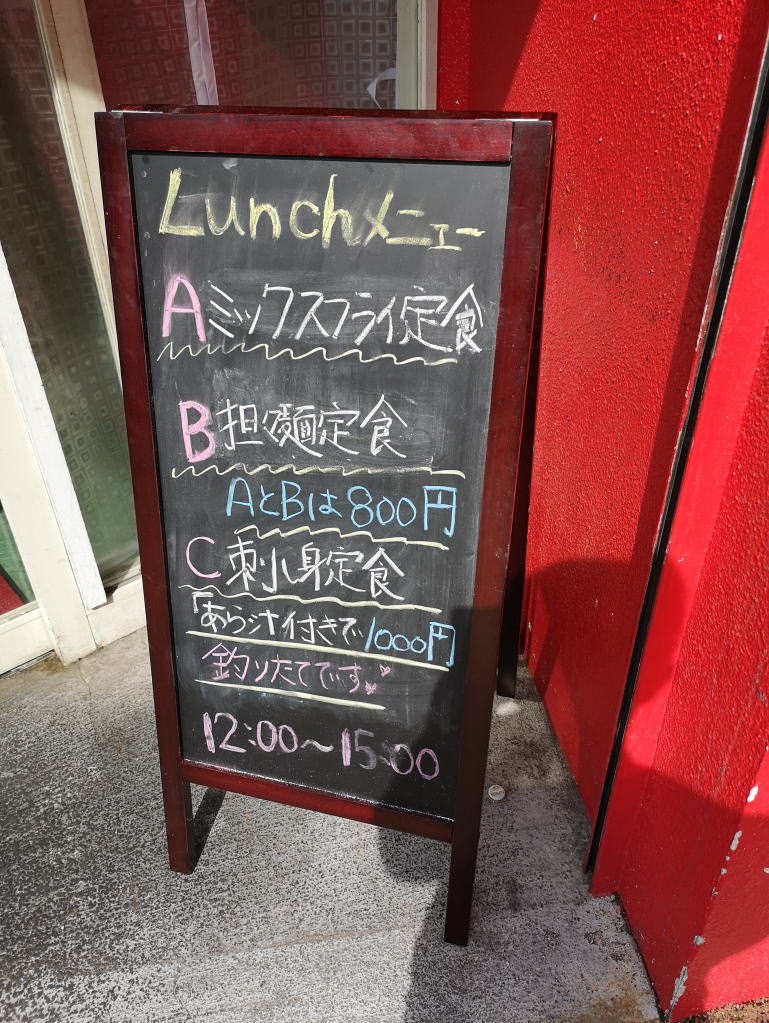 Lunchメニュー
Aミックスフライ定食
B担々麺定食
AとBは800円
C刺身定食
「あら汁付きで1000円
釣りたてです
12:00〜15:00